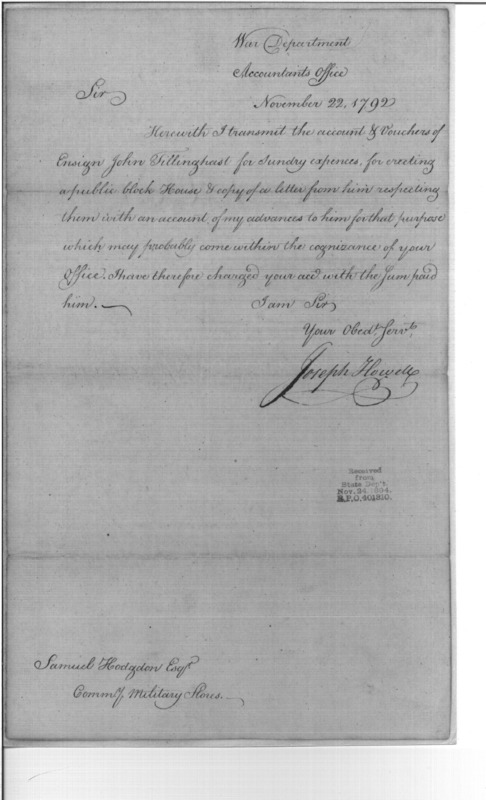 War Department
Accountants Office
Sir
November 22, 1792
Herewith I transmit the account & Vouchers of
Ensign John Tillinghast for Sundry expences, for erecting
a public block House & copy of a letter from him respecting
them with an account of my advances to him for that purpose
which may probably come within the cognizance of your
Office. I have therefore charged your acct. with the Sum paid
him.
I am Sir
Your Obedt. Servt.
Joseph Howell
Received
from
State Dep't.
Nov. 24, 1894.
R.P.O. 401810.
Samuel Hodgdon Esqr.
Commy. Military Stores.